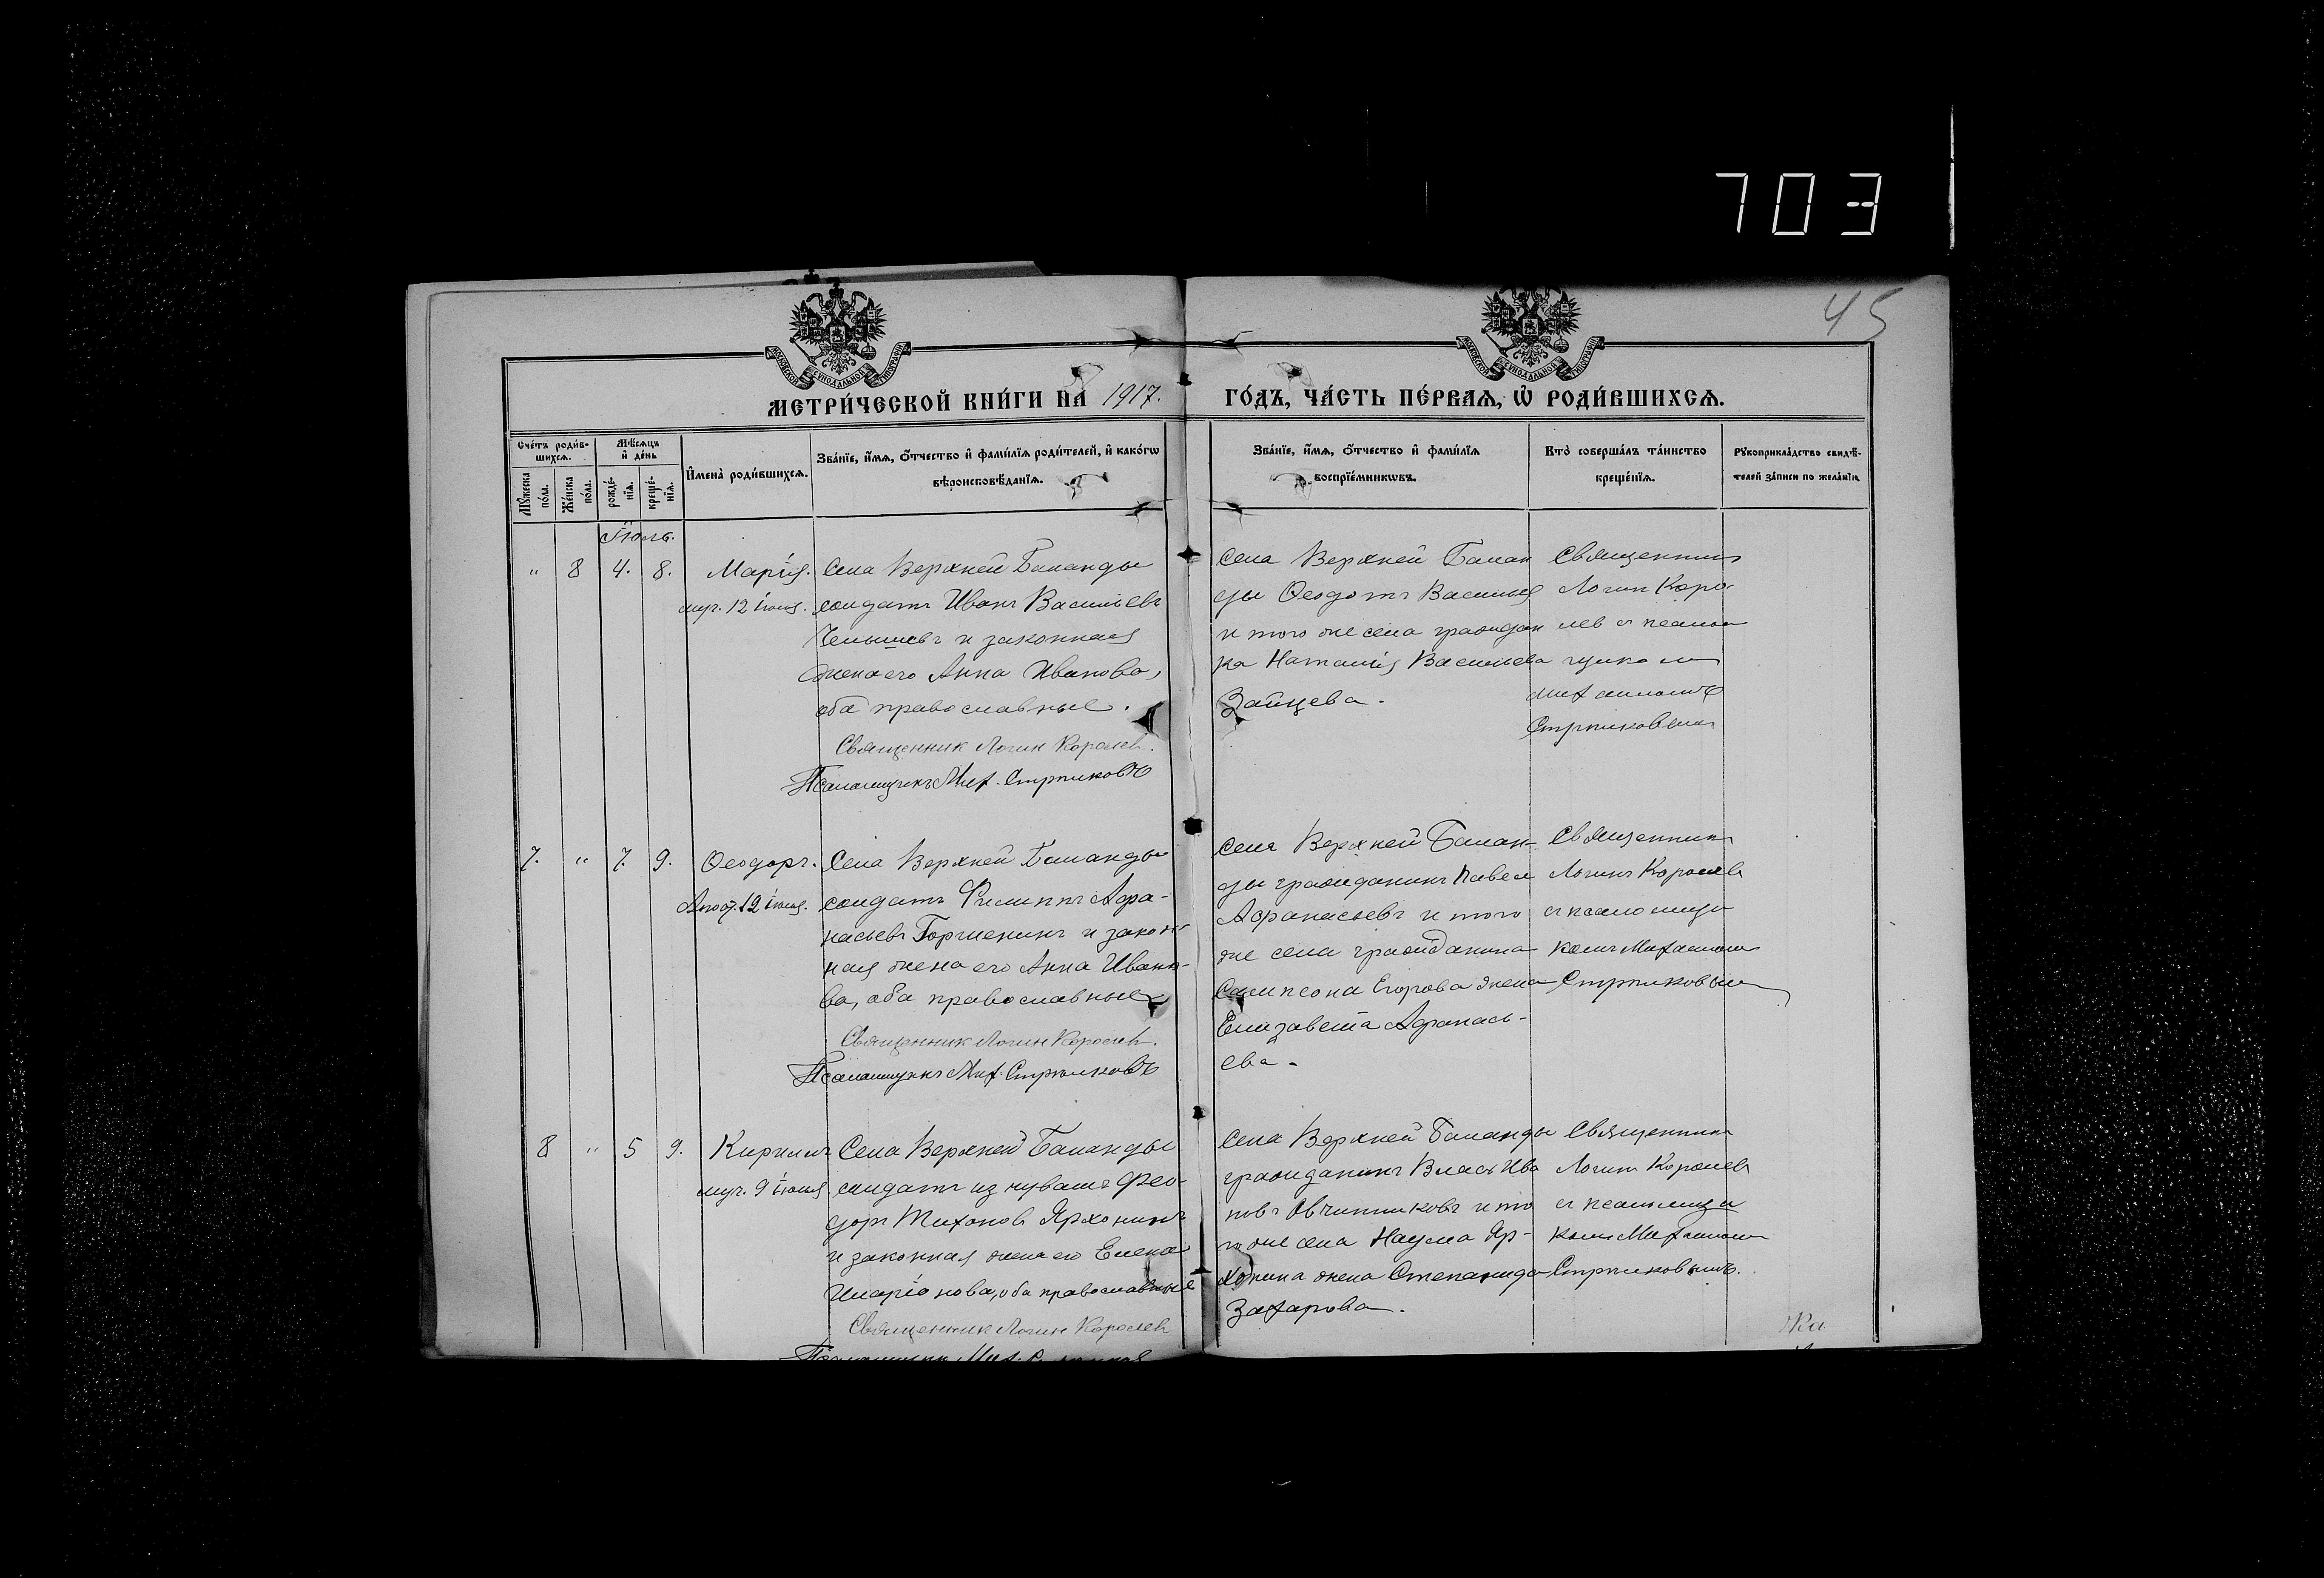 703
45
МЕТРИ́ЧЕСКОЙ КНИ́ГИ НА 1917.
ГО́ДЪ, ЧА́СТЬ ПЕ́РВАѦ, Ѡ҆ РОДИ́ВШИХСѦ.
Сче́тъ роди́в-
шихсѧ.
Мꙋ́жеска
по́ла.
Же́нска
по́ла.
Мѣ́сѧцъ
и҆ де́нь
рожде́-
нїѧ.
креще́-
нїѧ.
И҆мена̀ роди́вшихсѧ.
Зва́нїе, и҆́мѧ, ѻ҆́тчество и҆ фами́лїѧ роди́телей, и҆ како́гѡ
вѣроисповѣ́данїѧ.
Зва́нїе, и҆́мѧ, ѻ҆́тчество и҆ фами́лїѧ
воспрїе́мникѡвъ.
Кто̀ соверша́лъ та́инство
креще́нїѧ.
Рꙋкоприкла́дство свидѣ́-
телей за́писи по жела́нїю.
Іюль.
" 8 4. 8. Марія.
муч. 12 іюля.
Села Верхней Баланды
солдатъ Иванъ Васильевъ
Челышевъ и законная
жена его Анна Иванова,
оба православные.
Священник Логин Королев.
Псаломщикъ Мих. Стрѣлковъ
Села Верхней Балан
ды Ѳеодотъ Васильев
и того же села граждан
ка Наталія Васильева
Зайцева.
Священник
Логин Коро
лев с псалом
щиком
Михаиломъ
Стрѣлковым
7. " 7. 9. Ѳеодоръ.
Апост. 12 іюля.
Села Верхней Баланды
солдатъ Филиппъ Афа-
насьевъ Горшенинъ и закон
ная жена его Анна Ивано-
ва, оба православные
Священник Логин Королев.
Псаломщикъ Мих. Стрѣлковъ
Села Верхней Балан-
ды гражданинъ Павел
Афанасьевъ и того
же села гражданина
Сампсона Егорова жена
Елизавета Афанась-
ева.
Священник
Логинъ Королевъ
с псаломщи
комъ Михаилом
Стрѣлковым
8 " 5 9. Кириллъ
муч. 9 іюля
Села Верхней Баланды
солдатъ из чувашъ Фео-
доръ Тихонов Ярхонинъ
и законная жена его Елена
Иларіонова, оба православные
Священник Логин Королев
Псаломщикъ Мих.
Села Верхней Баланды
гражданинъ Власъ Ива
новъ Овчинниковъ и то
го же села Наума Яр-
хонина жена Степанида
Захарова.
Священник
Логин Королевъ
с псаломщи
ком Михаилом
Стрѣлковымъ.